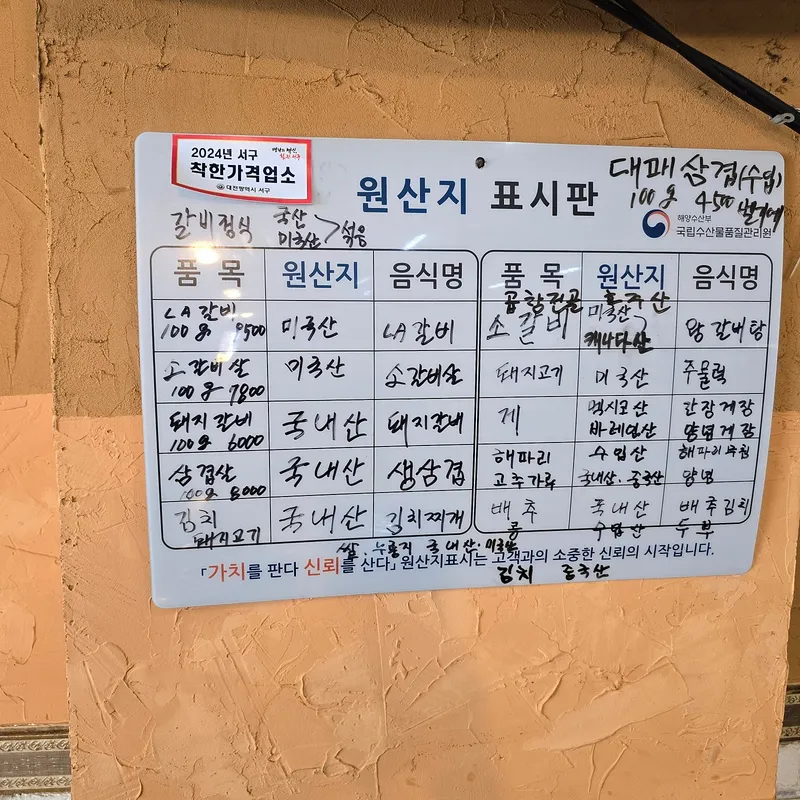 2024년 서구
착한가격업소
대전광역시 서구
원산지 표시판
대패삼겹(수입)
100g 4500
해양수산부
국립수산물품질관리원
갈비정식 국산
미국산 > 섞음
품 목 원산지 음식명
LA갈비
100g 9500 미국산 LA갈비
소갈비살
100g 7800 미국산 소갈비살
돼지갈비
100g 6000 국내산 돼지갈비
삼겹살
100g 8000 국내산 생삼겹
김치
돼지고기 국내산 김치찌개
품 목 원산지 음식명
곱창전골 호주산
소갈비 미국산
캐나다산 왕갈비탕
돼지고기 미국산 주물럭
게 멕시코산 간장게장
바레인산 양념게장
해파리 수입산 해파리무침
고추가루 국내산.중국산 양념
배추 국내산 배추김치
콩 수입산 두부
쌀.누룽지 국내산.미국산
「가치를 판다 신뢰를 산다」 원산지표시는 고객과의 소중한 신뢰의 시작입니다.
김치 중국산